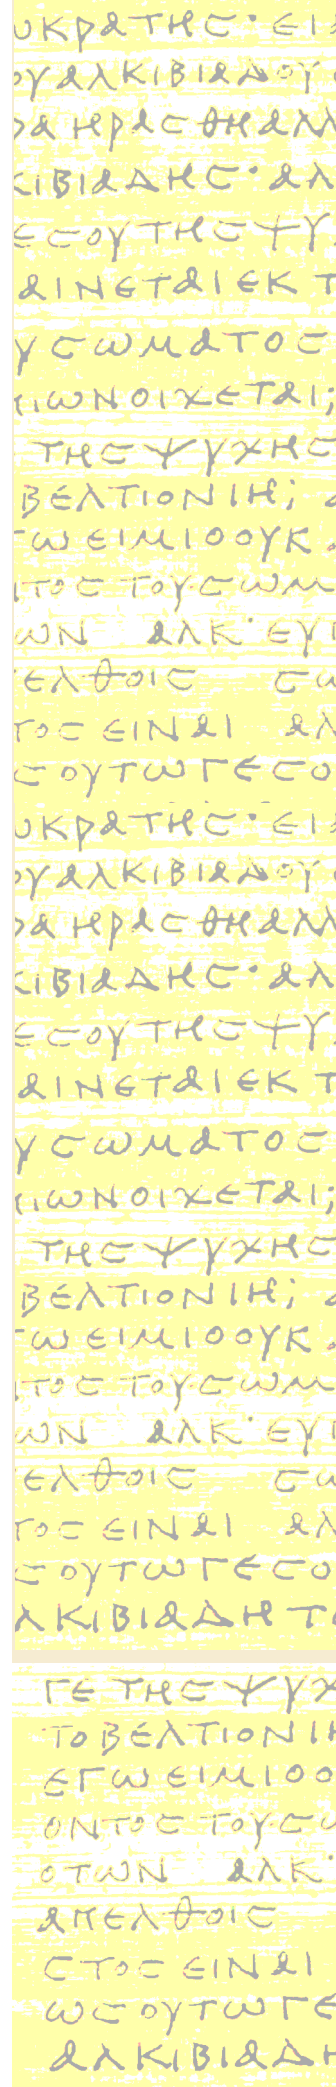 ΥΚΡΑΤΗС· ΕΙ
ΟΥΑΛΚΙΒΙΑΔΟΥ
ΡΑ ΗΡΑСΘΗΑΛΛ
ΚΙΒΙΑΔΗС· ΑΛ
ΕСΟΥΤΗСΨΥ
ΑΙΝΕΤΑΙΕΚ Τ
ΥСΩΜΑΤΟС
ΙΩΝΟΙΧΕΤΑΙ;
ΤΗСΨΥΧΗС
ΒΕΛΤΙΟΝΙΗ;
ΓΩΕΙΜΙΟΟΥΚ
ΝΤΟС ΤΟΥСΩΜ
ΩΝ ΑΛΚ· ΕΥ
ΕΛΘΟΙС СΩ
ΤΟС ΕΙΝΑΙ ΑΛ
СΟΥΤΩΓΕСΟ
ΥΚΡΑΤΗС· ΕΙ
ΟΥΑΛΚΙΒΙΑΔΟΥ
ΡΑ ΗΡΑСΘΗΑΛΛ
ΚΙΒΙΑΔΗС· ΑΛ
ΕСΟΥΤΗСΨΥ
ΑΙΝΕΤΑΙΕΚ Τ
ΥСΩΜΑΤΟС
ΙΩΝΟΙΧΕΤΑΙ;
ΤΗСΨΥΧΗС
ΒΕΛΤΙΟΝΙΗ;
ΓΩΕΙΜΙΟΟΥΚ
ΝΤΟС ΤΟΥСΩΜ
ΩΝ ΑΛΚ· ΕΥ
ΕΛΘΟΙС СΩ
ΤΟС ΕΙΝΑΙ ΑΛ
СΟΥΤΩΓΕСΟ
ΛΚΙΒΙΑΔΗ Τ
ΓΕ ΤΗСΨΥΧ
ΤΟΒΕΛΤΙΟΝΙΗ
ΕΓΩΕΙΜΙΟΟ
ΟΝΤΟС ΤΟΥСΩ
ΟΤΩΝ ΑΛΚ·
ΑΠΕΛΘΟΙС
СΤΟС ΕΙΝΑΙ
ΩСΟΥΤΩΓΕ
ΑΛΚΙΒΙΑΔΗ